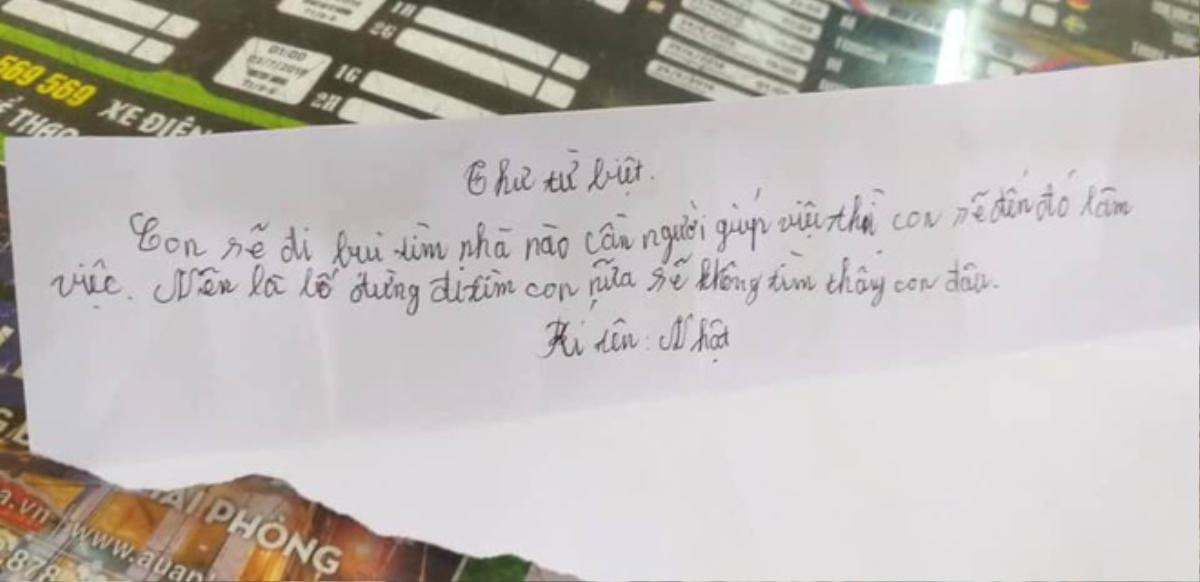 1H
2G
01:00
03/7/2018
1G
2H
569 569
XE ĐIỆN
Ể THAO
Thư từ biệt.
Con sẽ đi bụi tìm nhà nào cần người giúp việc thì con sẽ đến đó làm
việc. Nên là bố đừng đi tìm con nữa sẽ không tìm thấy con đâu.
Kí tên: Nhật
HẢI PHÒNG
a.vn
www.auan
.878